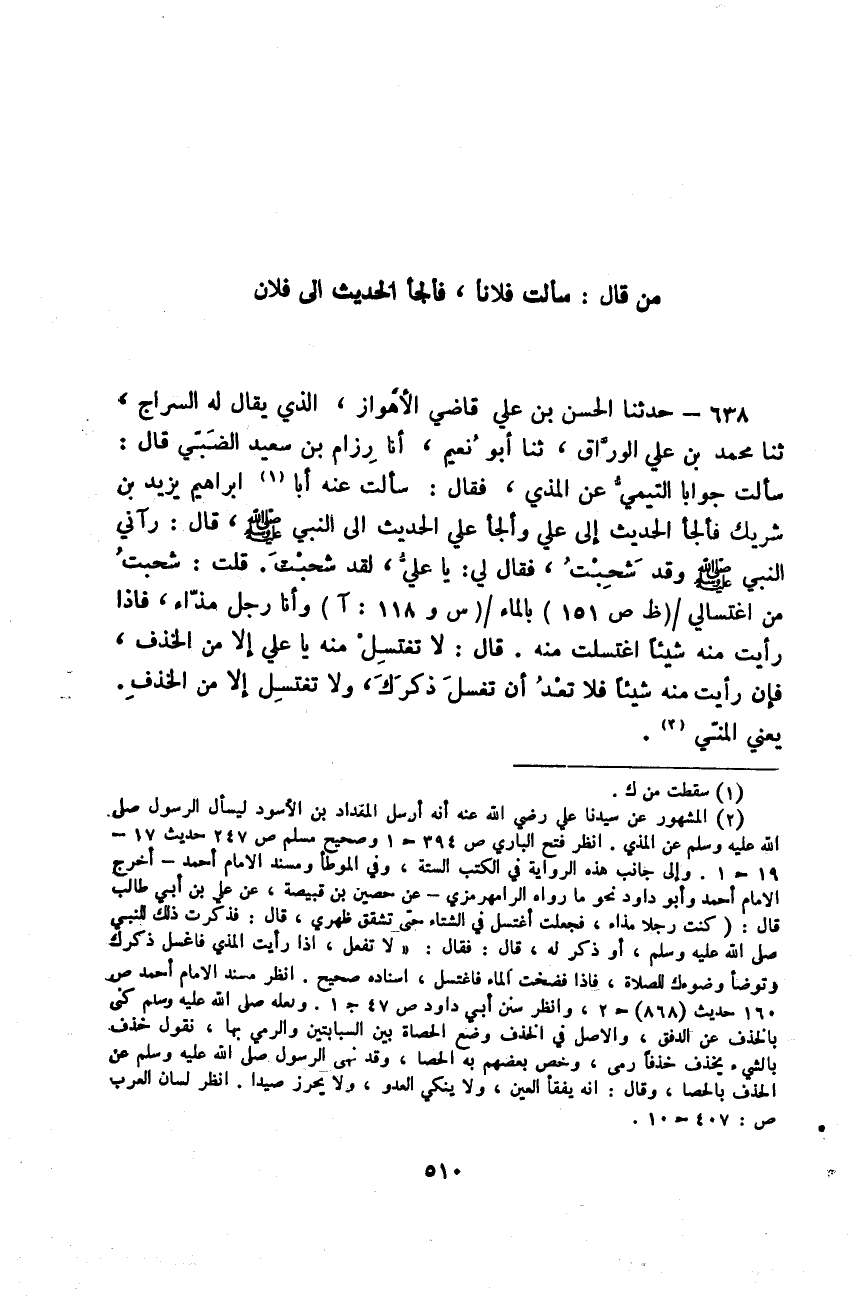 من قال : سألت فلاناً ، فألجأ الحديث الى فلان
٦٣٨ – حدثنا الحسن بن علي قاضي الأهواز ، الذي يقال له السراج ،
ثنا محمد بن علي الورَّاق ، ثنا أبو نُعيم ، أنا رِزام بن سعيد الضَبّي قال :
سألت جوابا التيميُّ عن المذي ، فقال : سألت عنه أبا (١) ابراهيم يزيد بن
شريك فألجأ الحديث إلى علي وألجأ علي الحديث الى النبي ﷺ ، قال : رآني
النبي ﷺ وقد شَحِبْتُ ، فقال لي: يا عليُّ ، لقد شحبْتَ. قلت : شحبتُ
من اغتسالي /(ظ ص ١٥١ ) بالماء /( س و ١١٨ : آ ) وأنا رجل مذّاء ، فاذا
رأيت منه شيئاً اغتسلت منه . قال : لا تغتسِلْ منه يا علي إلا من الخذف ،
فإن رأيت منه شيئاً فلا تعْدُ أن تغسلَ ذكرَكَ ، ولا تغتسِل إلا من الخذفِ.
يعني المنّي (٢) .
(١) سقطت من ك .
(٢) المشهور عن سيدنا علي رضي الله عنه أنه أرسل المقداد بن الأسود ليسأل الرسول صلى
الله عليه وسلم عن المذي . انظر فتح الباري ص ٣٩٤ ج ١ وصحيح مسلم ص ٢٤٧ حديث ١٧ –
١٩ ج ١ . وإلى جانب هذه الرواية في الكتب الستة ، وفي الموطأ ومسند الامام أحمد – أخرج
الامام أحمد وأبو داود نحو ما رواه الرامهرمزي – عن حصين بن قبيصة ، عن علي بن أبي طالب
قال : ( كنت رجلا مذاء ، فجعلت أغتسل في الشتاء حتى تشقق ظهري ، قال : فذكرت ذلك للنبي
صلى الله عليه وسلم ، أو ذكر له ، قال : فقال : « لا تفعل ، اذا رأيت المذي فاغسل ذكرك
وتوضأ وضوءك للصلاة ، فاذا فضخت الماء فاغتسل ، اسناده صحيح . انظر مسند الامام أحمد ص
١٦٠ حديث (٨٦٨) ج ٢ ، وانظر سنن أبي داود ص ٤٧ ج ١ . ولعله صلى الله عليه وسلم كنى
بالخذف عن الدفق ، والاصل في الخذف وضع الحصاة بين السبابتين والرمي بها ، نقول خذف
بالشيء يخذف خذفاً رمى ، وخص بعضهم به الحصا ، وقد نهى الرسول صلى الله عليه وسلم عن
الخذف بالحصا ، وقال : انه يفقأ العين ، ولا ينكي العدو ، ولا يحرز صيدا . انظر لسان العرب
ص : ٤٠٧ ج ١٠ .
٥١٠